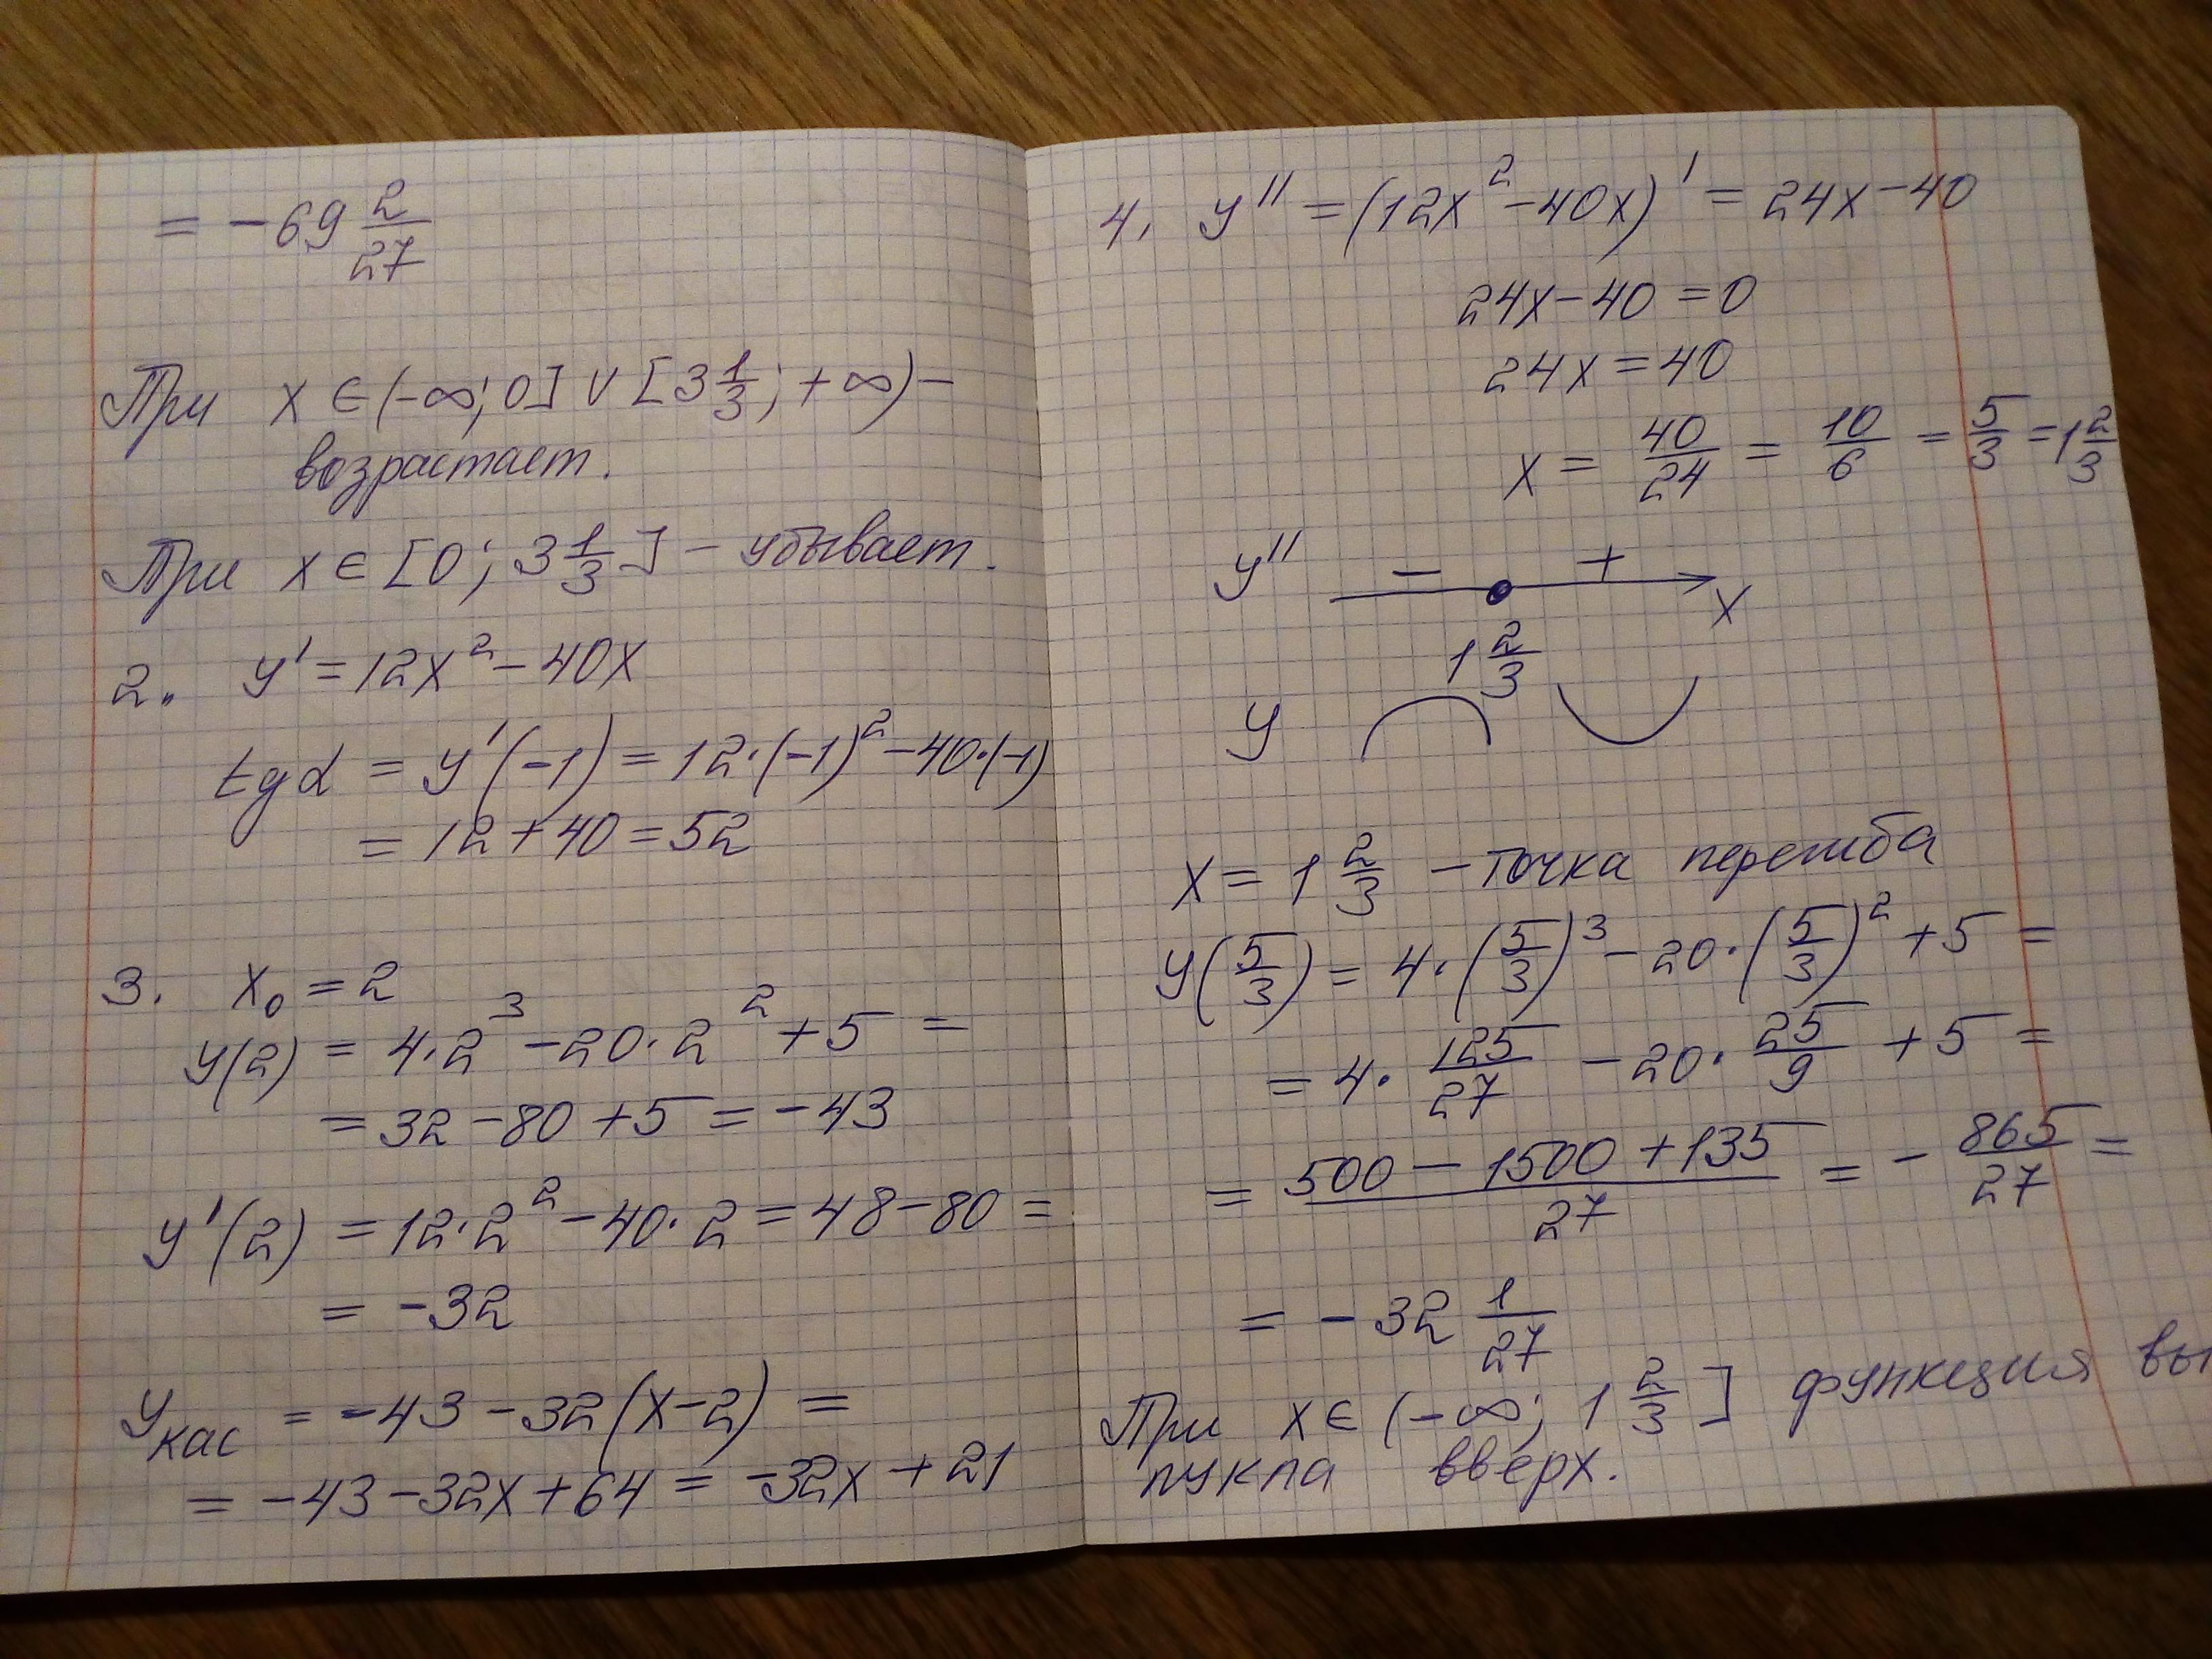 = -69 2/27
При x ∈ (-∞; 0] ∪ [3 1/3; +∞) –
возрастает.
При x ∈ [0; 3 1/3] – убывает.
2. y' = 12x² - 40x
tg α = y'(-1) = 12·(-1)² - 40·(-1)
= 12 + 40 = 52
3. x₀ = 2
y(2) = 4·2³ - 20·2² + 5 =
= 32 - 80 + 5 = -43
y'(2) = 12·2² - 40·2 = 48 - 80 =
= -32
y кас = -43 - 32(x-2) =
= -43 - 32x + 64 = -32x + 21
4. y'' = (12x² - 40x)' = 24x - 40
24x - 40 = 0
24x = 40
x = 40/24 = 10/6 = 5/3 = 1 2/3
y'' - + x
1 2/3
y
x = 1 2/3 – точка перегиба
y(5/3) = 4·(5/3)³ - 20·(5/3)² + 5 =
= 4·125/27 - 20·25/9 + 5 =
= (500 - 1500 + 135)/27 = -865/27 =
= -32 1/27
При x ∈ (-∞; 1 2/3] функция вы
пукла вверх.